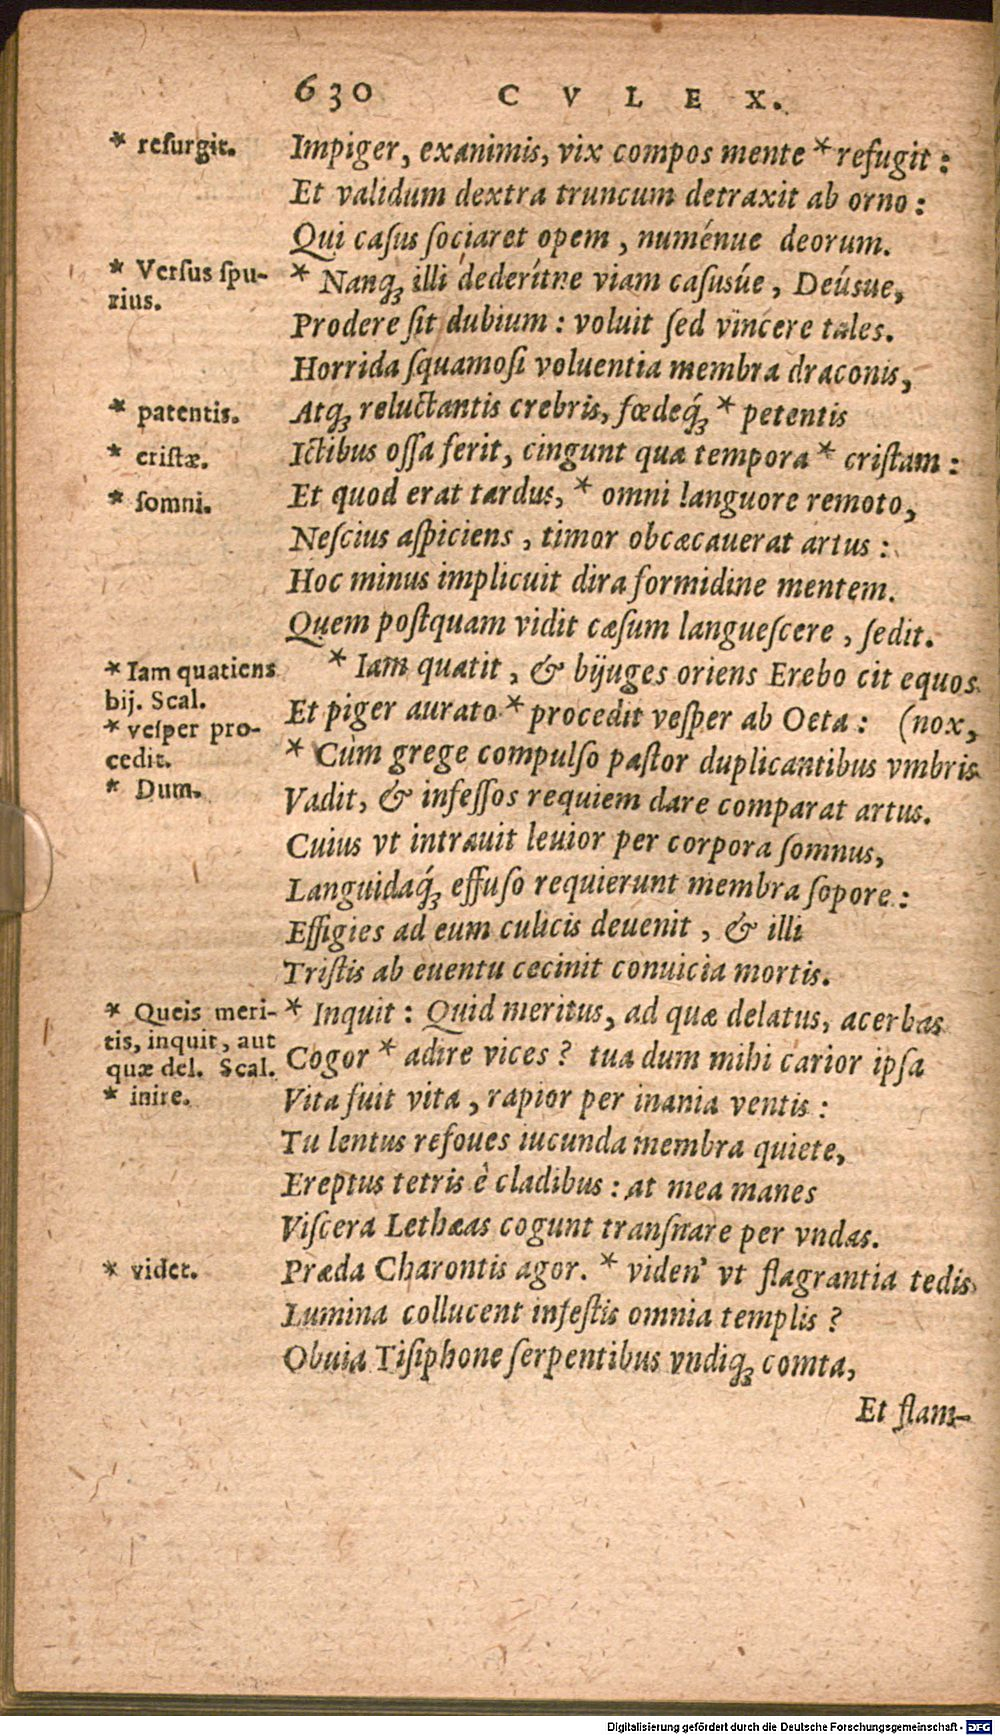 630 C V L E X.
* reſurgit.
Impiger, exanimis, vix compos mente * refugit :
Et validum dextra truncum detraxit ab orno :
Qui caſus ſociaret opem , numénue deorum.
* Verſus ſpu-
rius.
* Nanq́ꝫ illi dederítne viam caſusúe , Deúsue,
Prodere ſit dubium : voluit ſed vincere tales.
Horrida ſquamoſi voluentia membra draconis,
* patentis.
Atqꝫ reluctantis crebris, fœdeq́ꝫ * petentis
* criſtæ.
Ictibus oſſa ferit, cingunt qua tempora * criſtam :
* ſomni.
Et quod erat tardus, * omni languore remoto,
Neſcius aſpiciens , timor obcæcauerat artus :
Hoc minus implicuit dira formidine mentem.
Quem poſtquam vidit cæſum langueſcere , ſedit.
* Iam quatiens
bij. Scal.
* Iam quatit , & bijuges oriens Erebo cit equos
* veſper pro-
cedit.
Et piger aurato * procedit veſper ab Oeta : (nox,
* Dum.
* Cùm grege compulſo paſtor duplicantibus vmbris
Vadit, & infeſſos requiem dare comparat artus.
Cuius vt intrauit leuior per corpora ſomnus,
Languidaq́ꝫ effuſo requierunt membra ſopore :
Effigies ad eum culicis deuenit , & illi
Triſtis ab euentu cecinit conuicia mortis.
* Queis meri-
tis, inquit, aut
quæ del. Scal.
* Inquit : Quid meritus, ad quæ delatus, acerbas
Cogor * adire vices ? tua dum mihi carior ipſa
* inire.
Vita fuit vita , rapior per inania ventis :
Tu lentus refoues iucunda membra quiete,
Ereptus tetris è cladibus : at mea manes
Viſcera Lethæas cogunt tranſnare per vndas.
* videt.
Præda Charontis agor. * viden' vt flagrantia tedis
Lumina collucent infeſtis omnia templis ?
Obuia Tiſiphone ſerpentibus vndiqꝫ comta,
Et flam-
Digitalisierung gefördert durch die Deutsche Forschungsgemeinschaft - DFG